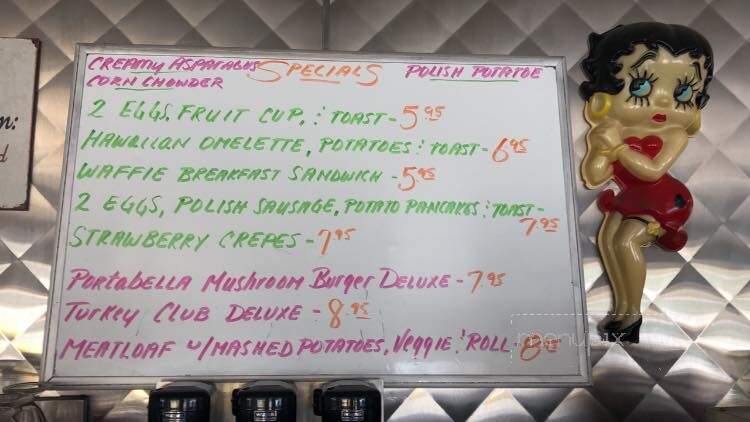 CREAMY ASPARAGUS SPECIALS POLISH POTATOE
CORN CHOWDER
2 EGGS, FRUIT CUP, : TOAST - 5 95
HAWLIIAN OMELETTE, POTATOES : TOAST - 6 95
WAFFIE BREAKFAST SANDWICH - 5 95
2 EGGS, POLISH SAUSAGE, POTATO PANCAKES : TOAST - 7.95
STRAWBERRY CREPES - 7 95
PORTABELLA MUSHROOM BURGER DELUXE - 7.95
TURKEY CLUB DELUXE - 8.95
MEATLOAF W/MASHED POTATOES, VEGGIE : ROLL - 8.95